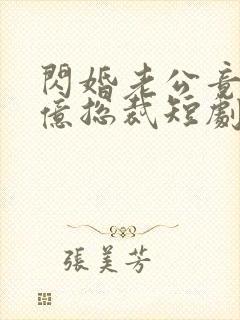 閃婚老公竟
億總裁短劇
張美芳